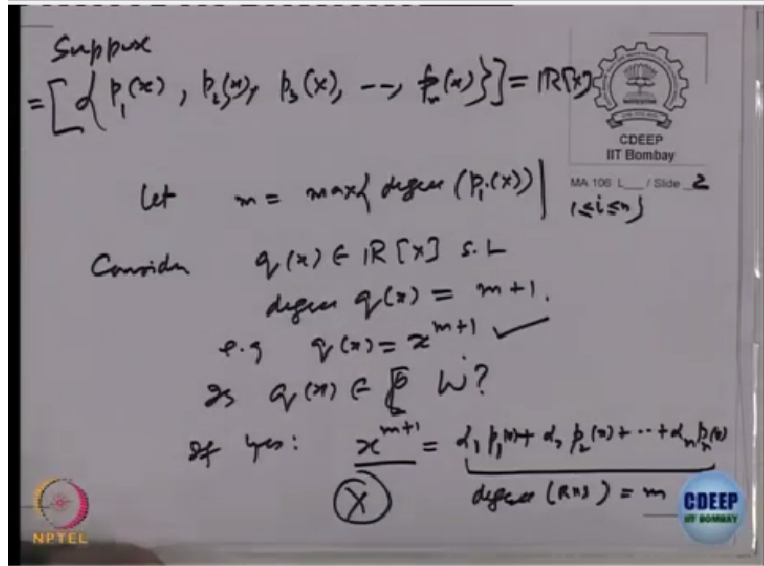 Suppose
= [ { p₁(x) , p₂(x), p₃(x), --, pₙ(x) } ] = ℝ[x]
CDEEP
IIT Bombay
MA 106 L___ / Slide 2
Let m = max { degree (pᵢ(x)) | 1≤i≤n }
Consider q(x) ∈ ℝ[x] s.t
degree q(x) = m+1.
e.g q(x) = x^{m+1} ✓
Is q(x) ∈ W?
If yes: x^{m+1} = α₁ p₁(x) + α₂ p₂(x) + ⋯ + αₙ pₙ(x)
(X) degree (RHS) = m
NPTEL
CDEEP
IIT BOMBAY